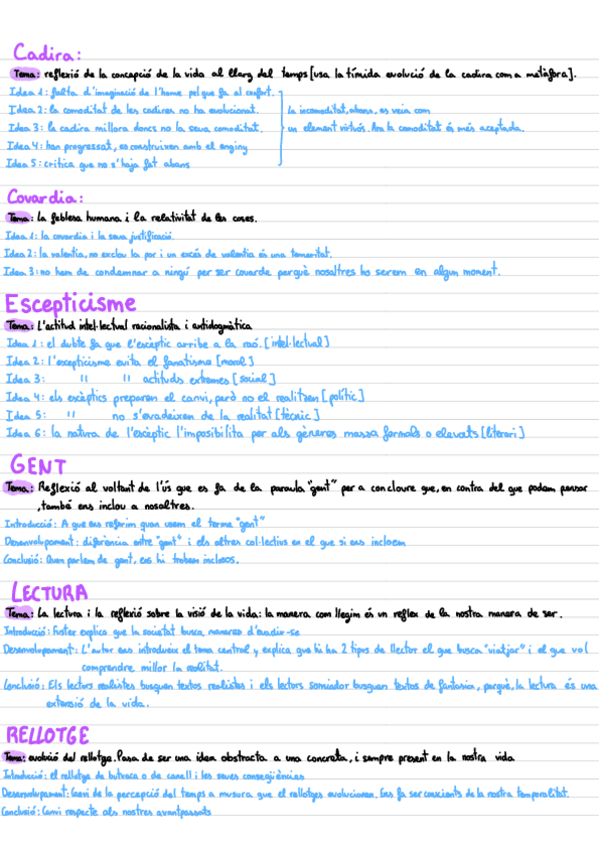 Cadira:
Tema: reflexió de la concepció de la vida al llarg del temps [usa la tímida evolució de la cadira com a metàfora].
Idea 1: falta d'imaginació de l'home pel que fa al confort.
Idea 2: la comoditat de les cadires no ha evolucionat. La incomoditat, abans, es veia com
Idea 3: la cadira millora doncs no la seva comoditat. un element virtuós. Ara la comoditat és més acceptada.
Idea 4: han progressat, es construixen amb el enginy
Idea 5: critica que no s'haja fet abans
Covardia:
Tema: La feblesa humana i la relativitat de les coses.
Idea 1: la covardia i la seva justificació.
Idea 2: la valentia, no exclou la por i un excés de valentia és una temeritat.
Idea 3: no hem de condemnar a ningú per ser covarde perquè nosaltres ho serem en algun moment.
Escepticisme
Tema: L'actitud intel·lectual racionalista i antidogmàtica
Idea 1: el dubte fa que l'escèptic arribe a la raó. [intel·lectual]
Idea 2: l'escepticisme evita el fanatisme [moral]
Idea 3: " " actituds extremes [social]
Idea 4: els escèptics preparen el canvi, però no el realitzen [polític]
Idea 5: " no s'evadeixen de la realitat [tècnic]
Idea 6: la natura de l'escèptic l'imposibilita per als gèneres massa formals o elevats [literari]
GENT
Tema: Reflexió al voltant de l'ús que es fa de la paraula "gent" per a concloure que, en contra del que podem pensar
, també ens inclou a nosaltres.
Introducció: A que ens referim quan usem el terme "gent"
Desenvolupament: diferència entre "gent" i els altres col·lectius en el que si ens incloem
Conclusió: Quan parlem de gent, ens hi trobem inclosos.
LECTURA
Tema: La lectura i la reflexió sobre la visió de la vida: la manera com llegim és un reflex de la nostra manera de ser.
Introducció: Fuster explica que la societat busca maneres d'evadir-se
Desenvolupament: L'autor ens introdueix el tema central y explica que hi ha 2 tipus de llector el que busca "viatjar" i el que vol
comprendre millor la realitat.
Conclusió: Els lectors realistes busquen textos realistes i els lectors somiador busquen textos de fantasia, perquè, la lectura és una
extensió de la vida.
RELLOTGE
Tema: evolució del rellotge. Passa de ser una idea abstracta a una concreta, i sempre present en la nostra vida
Introducció: el rellotge de butxaca o de canell i les seves conseqüències
Desenvolupament: Canvi de la percepció del temps a mesura que el rellotges evolucionen. Ens fa ser conscients de la nostra temporalitat.
Conclusió: Canvi respecte als nostres avantpassats